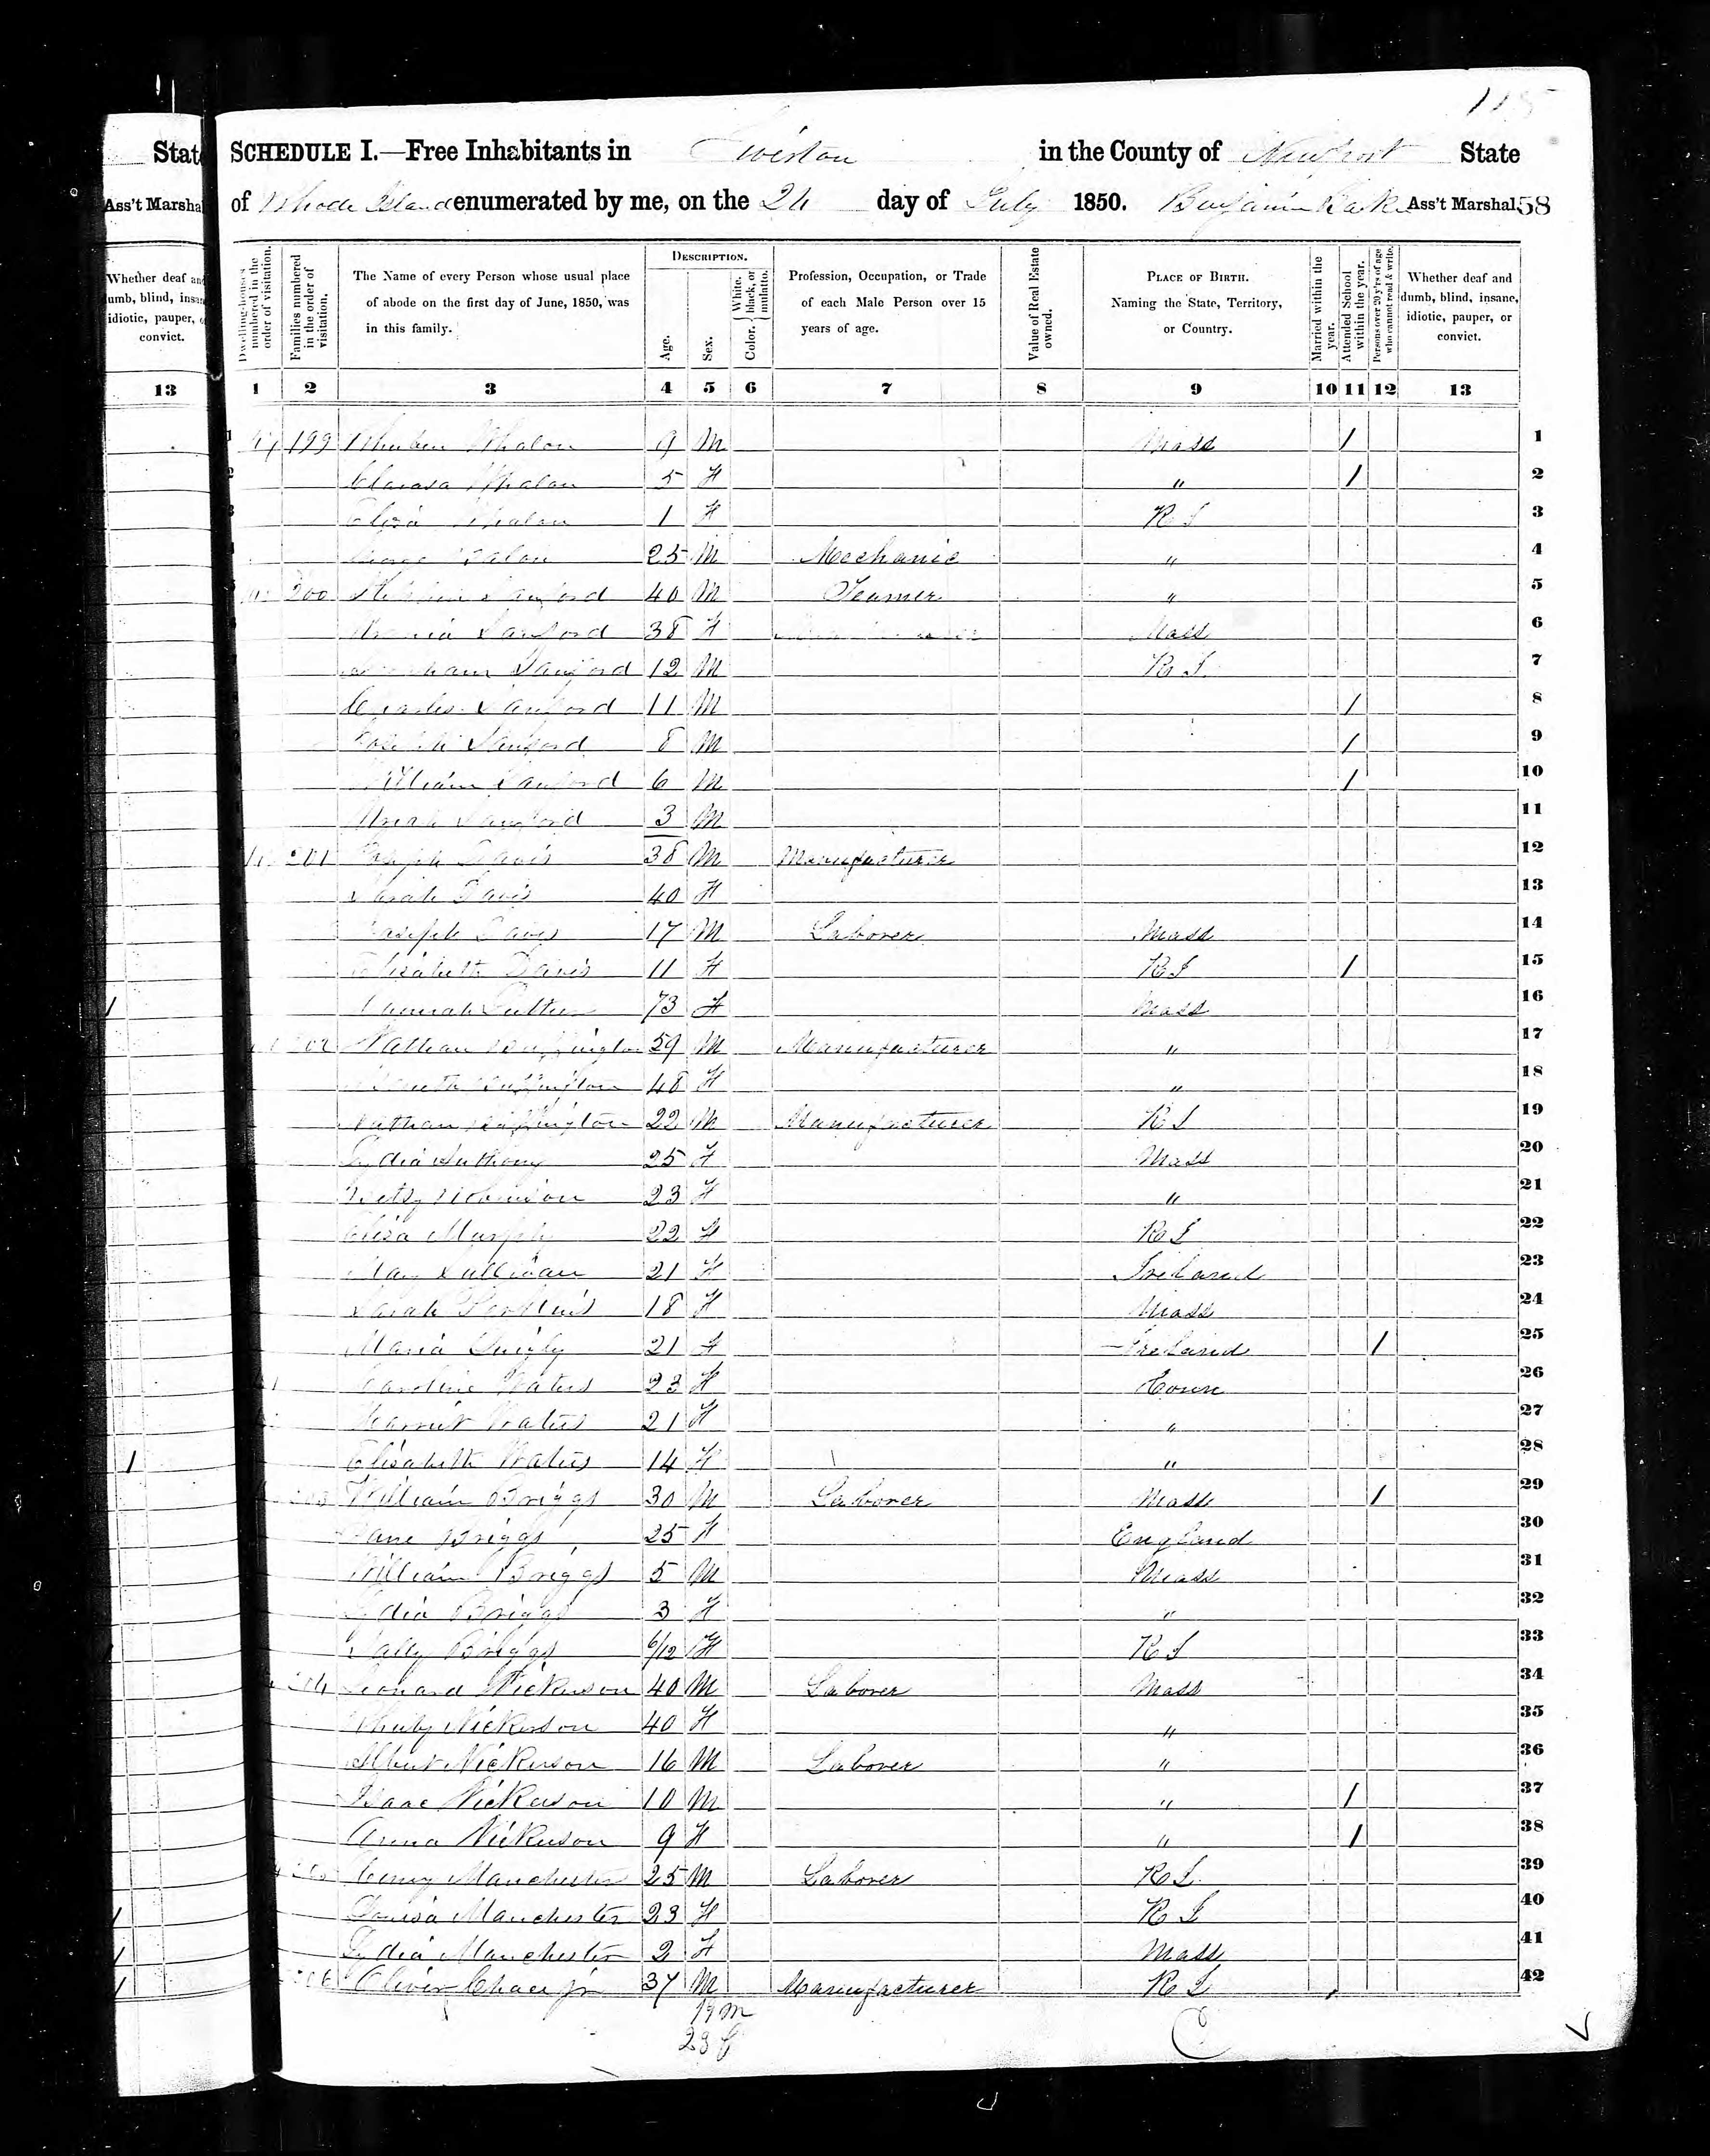 115
State SCHEDULE I.—Free Inhabitants in Tiverton in the County of Newport State
Ass't Marshal of Rhode Island enumerated by me, on the 26 day of July 1850. Benjamin Ass't Marshal 58
Whether deaf and dumb, blind, insane, idiotic, pauper, or convict.
Dwelling-houses numbered in the order of visitation.
Families numbered in the order of visitation.
The Name of every Person whose usual place of abode on the first day of June, 1850, was in this family.
DESCRIPTION.
Age.
Sex.
Color. White, black, or mulatto.
Profession, Occupation, or Trade of each Male Person over 15 years of age.
Value of Real Estate owned.
PLACE OF BIRTH. Naming the State, Territory, or Country.
Married within the year.
Attended School within the year.
Persons over 20 y'rs of age who cannot read & write.
Whether deaf and dumb, blind, insane, idiotic, pauper, or convict.
13 1 2 3 4 5 6 7 8 9 10 11 12 13
1 199 Whalon 9 M Mass / 1
2 Whalon 5 F " / 2
3 Eliza Whalon 1 F R I 3
4 George Whalon 25 M Mechanic " 4
5 200 Sanford 40 M " 5
Sanford 38 F Mass 6
Sanford 12 M R I 7
Charles Sanford 11 M / 8
Joseph Sanford 8 M / 9
William Sanford 6 M / 10
Sanford 3 M 11
201 Joseph Davis 38 M Manufacturer 12
Sarah Davis 40 F 13
Joseph Davis 17 M Laborer Mass 14
Elisabeth Davis 11 F R I / 15
Hannah 73 F Mass 16
202 Nathan Buffington 59 M Manufacturer " 17
Buffington 48 F " 18
Nathan Buffington 22 M Manufacturer R I 19
Lydia Anthony 25 F Mass 20
Betsy Robinson 23 F " 21
Eliza Murphy 22 F R I 22
Mary Sullivan 21 F Ireland 23
Sarah Perkins 18 F Mass 24
Maria Quigly 21 F Ireland / 25
Caroline Waters 23 F Conn 26
Harriet Waters 21 F " 27
Elisabeth Waters 14 F " 28
203 William Briggs 30 M Laborer Mass / 29
Jane Briggs 25 F England 30
William Briggs 5 M Mass 31
Lydia Briggs 3 F " 32
Sally Briggs 6/12 F R I 33
204 Leonard Nickerson 40 M Laborer Mass 34
Nickerson 40 F " 35
Albert Nickerson 16 M Laborer " 36
Isaac Nickerson 10 M " / 37
Anna Nickerson 9 F " / 38
205 Manchester 25 M Laborer R I 39
Louisa Manchester 23 F R I 40
Lydia Manchester 2 F Mass 41
206 Oliver Chace jr 37 M Manufacturer R I 42
19 m
23 f